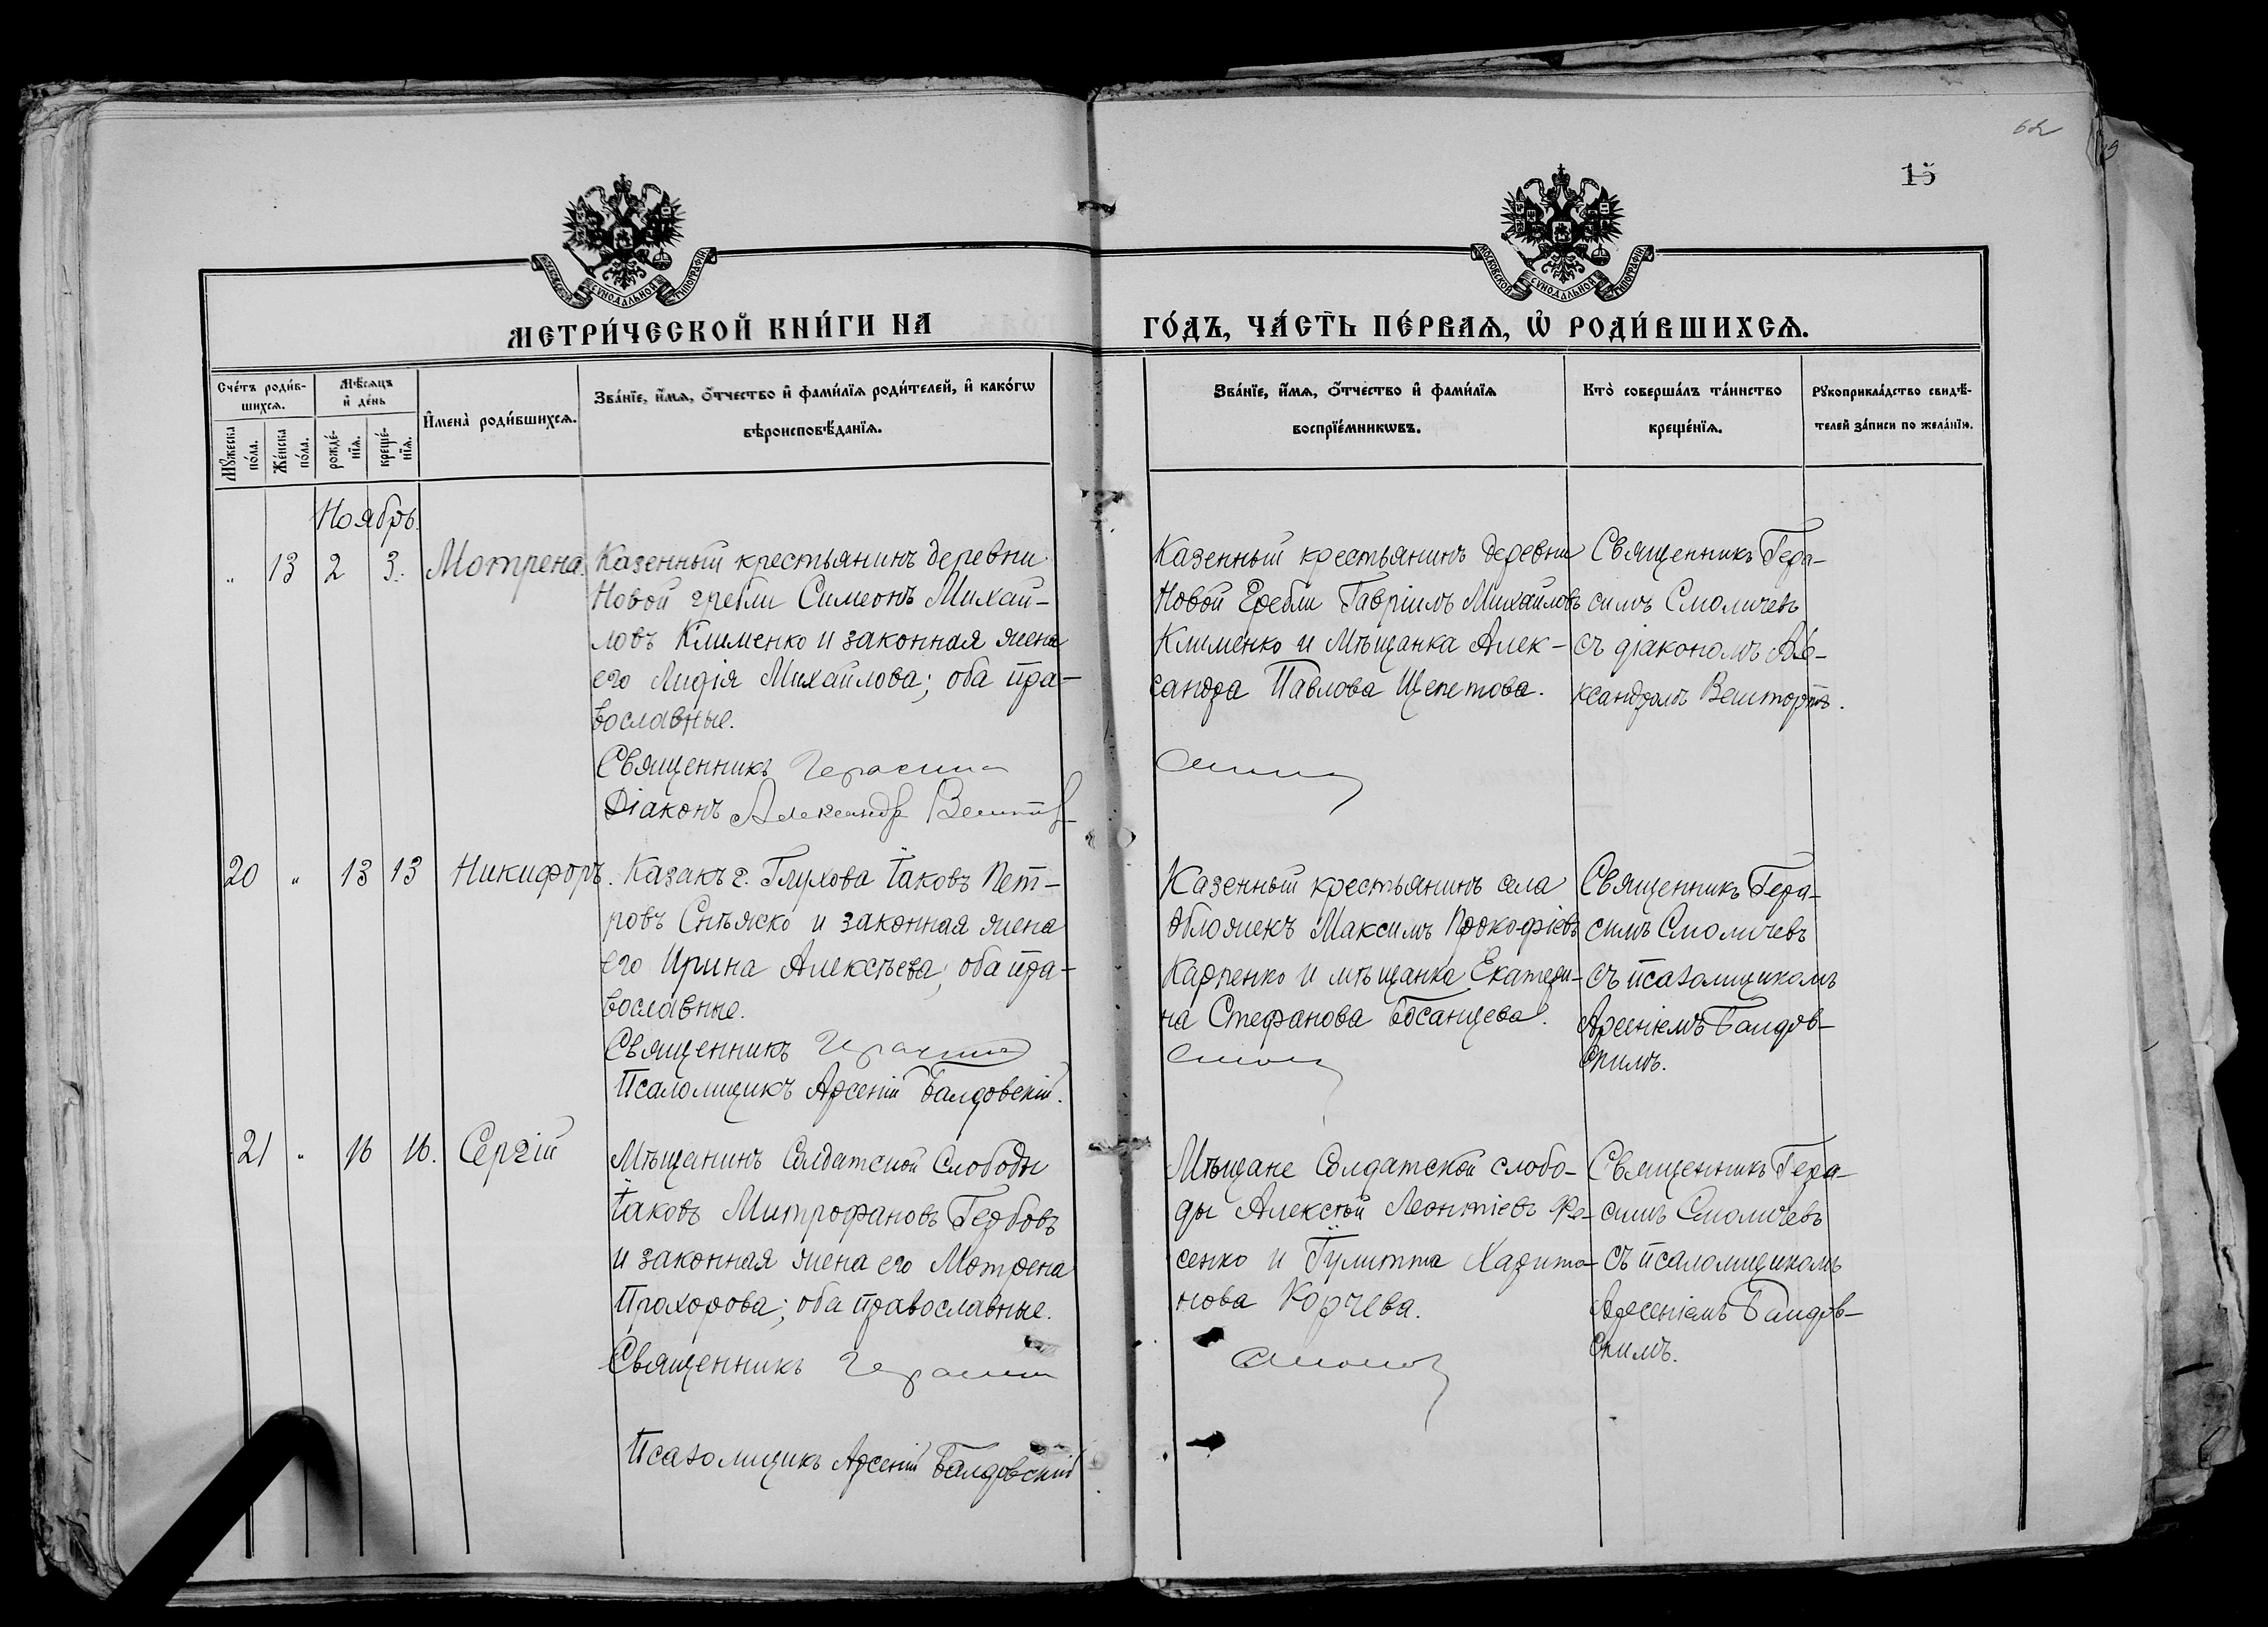 62
15
МОСКОВСКОЙ СУНОДАЛЬНОЙ ТИПОГРАФІИ
МОСКОВСКОЙ СУНОДАЛЬНОЙ ТИПОГРАФІИ
МЕТРИ́ЧЕСКОЙ КНИ́ГИ НА
ГО́ДЪ, ЧА́СТЬ ПЕ́РВАѦ, Ѡ҆ РОДИ́ВШИХСѦ.
Сче́тъ роди́в-
шихсѧ.
Мѣ́сѧцъ
и҆ де́нь
И҆мена̀ роди́вшихсѧ.
Зва́нїе, и҆́мѧ, ѻ҆́тчество и҆ фами́лїѧ роди́телей, и҆ како́гѡ
вѣроисповѣ́данїѧ.
Мꙋ́жеска
по́ла.
Же́нска
по́ла.
рожде́-
нїѧ.
креще́-
нїѧ.
Зва́нїе, и҆́мѧ, ѻ҆́тчество и҆ фами́лїѧ
воспрїе́мникѡвъ.
Кто̀ соверша́лъ та́инство
креще́нїѧ.
Рꙋкоприкла́дство свидѣ́-
телей за́писи по жела́нїю.
Ноябрь.
„ 13 2 3. Мотрена.
Казенный крестьянинъ деревни
Новой гребли Симеонъ Михай-
ловъ Клименко и законная жена
его Лидія Михайлова; оба пра-
вославные.
Священникъ Герасим
Діаконъ Александр
Казенный крестьянинъ деревни
Новой Гребли Гавріилъ Михайловъ
Клименко и Мѣщанка Алек-
сандра Павлова Щепетова.
Священникъ Гера-
симъ Смоличевъ
съ діакономъ Але-
ксандромъ
20 „ 13 13 Никифоръ.
Казакъ г. Глухова Іаковъ Пет-
ровъ Снѣжко и законная жена
его Ирина Алексѣева; оба пра-
вославные.
Священникъ Герасим
Псаломщикъ Арсеній Балдовскій.
Казенный крестьянинъ села
Обложекъ Максимъ Прокофіевъ
Карпенко и мѣщанка Екатери-
на Стефанова Босанцева.
Священникъ Гера-
симъ Смоличевъ
съ псаломщикомъ
Арсеніемъ Балдов-
скимъ.
21 „ 16 16. Сергій
Мѣщанинъ Солдатской Слободы
Іаковъ Митрофановъ Гербовъ
и законная жена его Мотрена
Прохорова; оба православные.
Священникъ Герасим
Псаломщикъ Арсеній Балдовский
Мѣщане Солдатской слобо-
ды Алексѣй Леонтіевъ Фе-
сенко и Гулитта Харито-
нова Корчева.
Священникъ Гера-
симъ Смоличевъ
съ псаломщикомъ
Арсеніемъ Балдов-
скимъ.